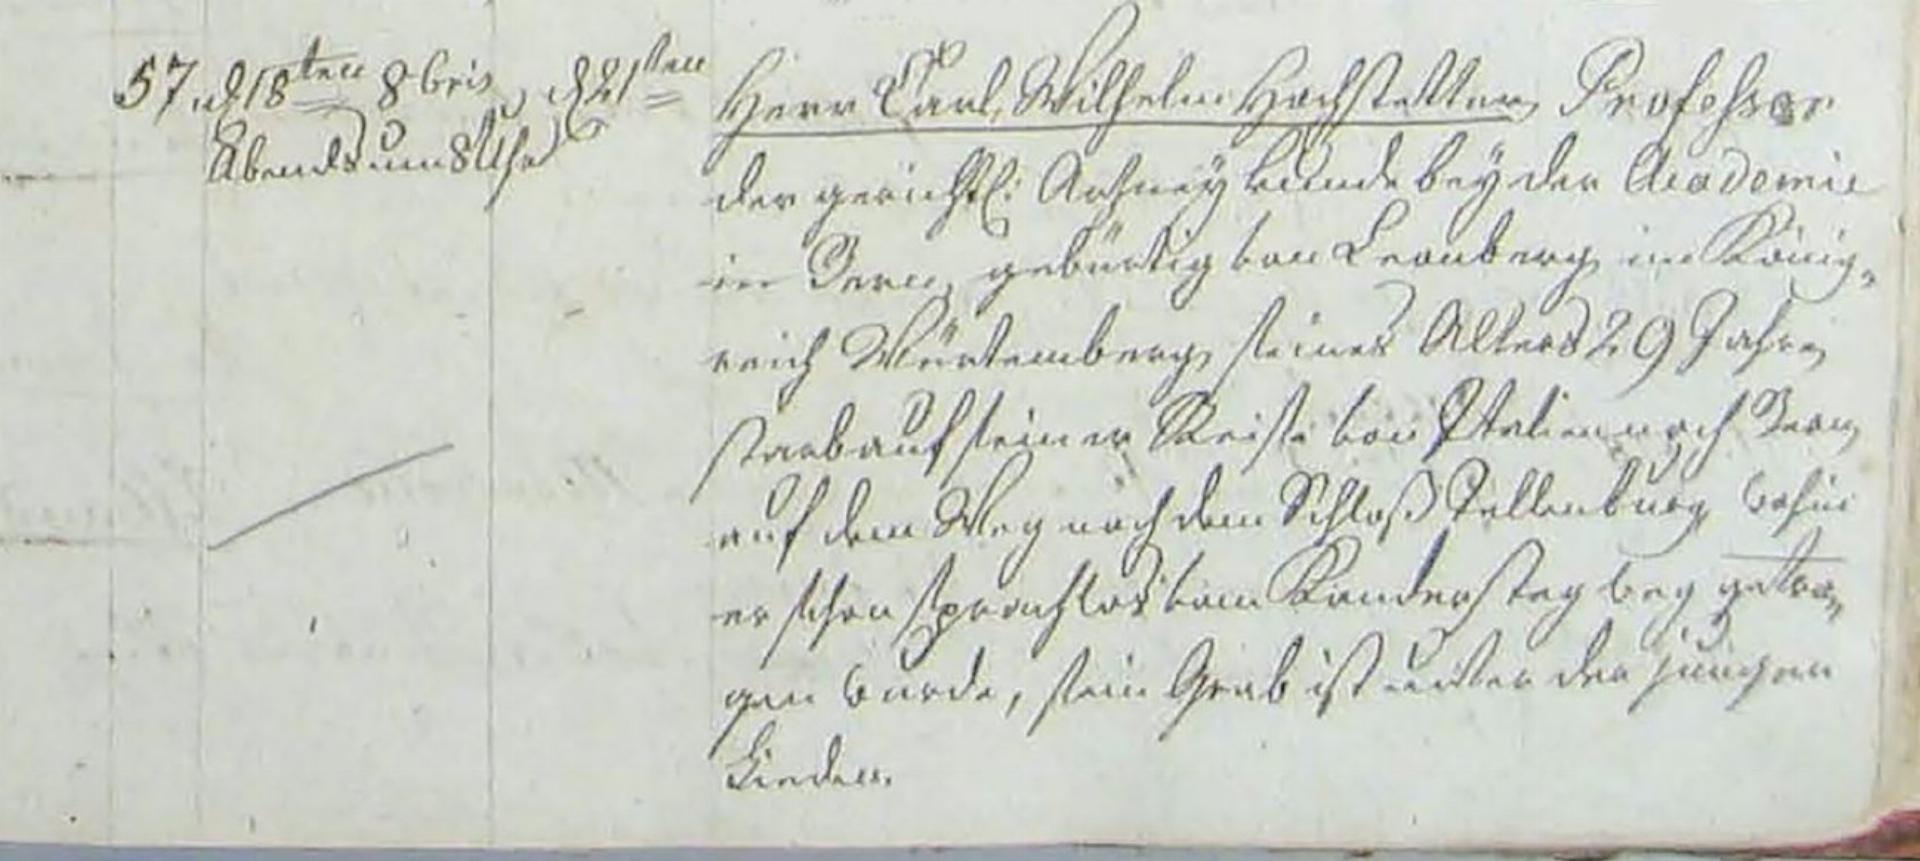 57. d 18ten 8bris, d 21ten
Abends um 8 Uhr
Herr Carl Wilhelm Hochstetter, Professor
der gerichtl: Arzneykunde bey der Academie
in Bern, gebürtig von Leonberg im König-
reich Würtemberg, seines Alters 29 Jahre,
starb auf seiner Reise von Italien nach Bern,
auf dem Weg nach dem Schloß Tellenburg, wohin
er schon sprachlos vom Kandersteg weg getra-
gen wurde, sein Grab ist unter der jungen
Linden.